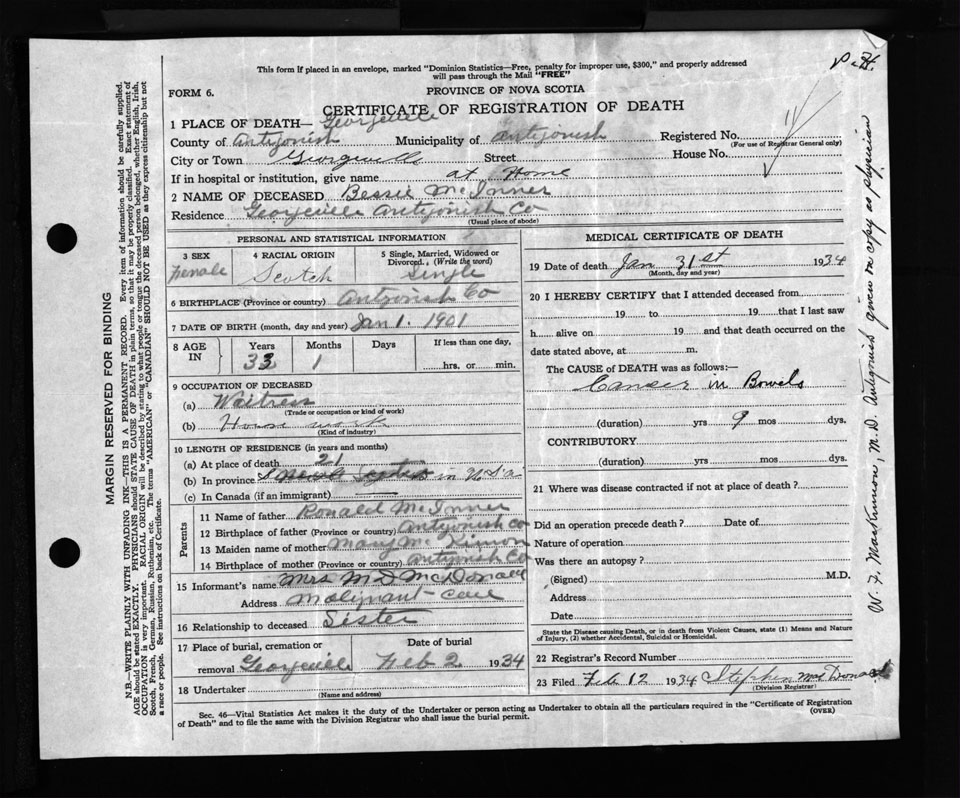 This form if placed in an envelope, marked "Dominion Statistics—Free, penalty for improper use, $300," and properly addressed
will pass through the Mail "FREE"
FORM 6.
PROVINCE OF NOVA SCOTIA
CERTIFICATE OF REGISTRATION OF DEATH
1 PLACE OF DEATH— Georgeville
County of Antigonish Municipality of Antigonish Registered No.
(For use of Registrar General only)
City or Town Georgeville Street House No.
If in hospital or institution, give name at Home
2 NAME OF DECEASED Bessie McInner
Residence Georgeville Antigonish Co
(Usual place of abode)
PERSONAL AND STATISTICAL INFORMATION
3 SEX 4 RACIAL ORIGIN 5 Single, Married, Widowed or
Divorced. (Write the word)
Female Scotch Single
6 BIRTHPLACE (Province or country) Antigonish Co
7 DATE OF BIRTH (month, day and year) Jan 1. 1901
8 AGE IN Years Months Days If less than one day,
33 1 hrs. or min.
9 OCCUPATION OF DECEASED
(a) Waitress
(Trade or occupation or kind of work)
(b) House work
(Kind of industry)
10 LENGTH OF RESIDENCE (in years and months)
(a) At place of death 21
(b) In province in U.S.a
(c) In Canada (if an immigrant)
Parents
11 Name of father Ronald McInner
12 Birthplace of father (Province or country) Antigonish Co
13 Maiden name of mother Mary McKinnon
14 Birthplace of mother (Province or country) Antigonish Co
15 Informant's name Mrs M D McDonald
Address Malignant Cove
16 Relationship to deceased Sister
17 Place of burial, cremation or Date of burial
removal Georgeville Feb 2 1934
18 Undertaker
(Name and address)
MEDICAL CERTIFICATE OF DEATH
19 Date of death Jan 31st 1934
(Month, day and year)
20 I HEREBY CERTIFY that I attended deceased from
19 to 19 that I last saw
h alive on 19 and that death occurred on
date stated above, at m.
The CAUSE of DEATH was as follows:—
Cancer in Bowels
(duration) yrs 9 mos dys.
CONTRIBUTORY
(duration) yrs mos dys.
21 Where was disease contracted if not at place of death?
Did an operation precede death? Date of
Nature of operation
Was there an autopsy?
(Signed) M.D.
Address
Date
State the Disease causing Death, or in death from Violent Causes, state (1) Means and Nature
of Injury, (2) whether Accidental, Suicidal or Homicidal.
22 Registrar's Record Number
23 Filed Feb 12 1934 Stephen McDonald
(Division Registrar)
Sec. 46—Vital Statistics Act makes it the duty of the Undertaker or person acting as Undertaker to obtain all the particulars required in the "Certificate of Registration
of Death" and to file the same with the Division Registrar who shall issue the burial permit.
(OVER)
MARGIN RESERVED FOR BINDING
N.B.—WRITE PLAINLY WITH UNFADING INK—THIS IS A PERMANENT RECORD. Every item of information should be carefully supplied.
AGE should be stated EXACTLY. PHYSICIANS should STATE CAUSE OF DEATH in plain terms, so that it may be properly classified. Exact statement of
OCCUPATION is very important. RACIAL ORIGIN will be described by stating to what people or tongue the deceased person belonged, whether English, Irish,
Scotch, French, German, Russian, Ruthenian, etc. The terms "AMERICAN" or "CANADIAN" SHOULD NOT BE USED as they express citizenship but not
a race or people. See instructions on back of Certificate.
W. F. MacKinnon, M.D. Antigonish given on copy as physician